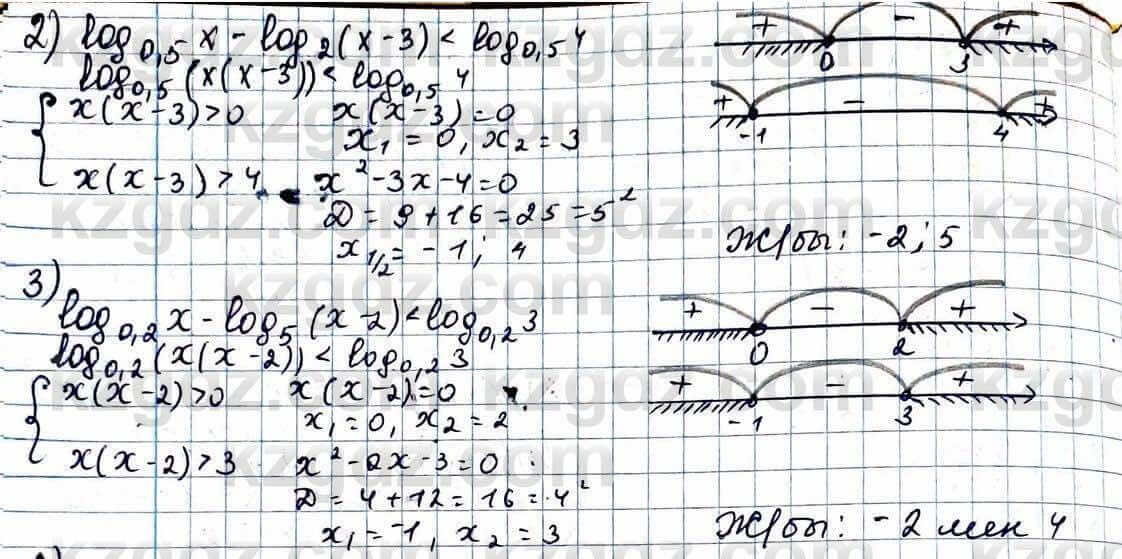 2) log₀,₅ x - log₂(x-3) < log₀,₅ 4
log₀,₅(x(x-3)) < log₀,₅ 4
{ x(x-3) > 0    x(x-3) = 0
x₁ = 0, x₂ = 3
x(x-3) > 4    x² - 3x - 4 = 0
D = 9 + 16 = 25 = 5²
x₁/₂ = -1; 4
+ - +
0 3
+ - +
-1 4
Ж/бы: -2; 5
3)
log₀,₂ x - log₅(x-2) < log₀,₂ 3
log₀,₂(x(x-2)) < log₀,₂ 3
{ x(x-2) > 0    x(x-2) = 0
x₁ = 0, x₂ = 2
x(x-2) > 3    x² - 2x - 3 = 0
D = 4 + 12 = 16 = 4²
x₁ = -1, x₂ = 3
+ - +
0 2
+ - +
-1 3
Ж/бы: -2 мен 4
kzgdz.com